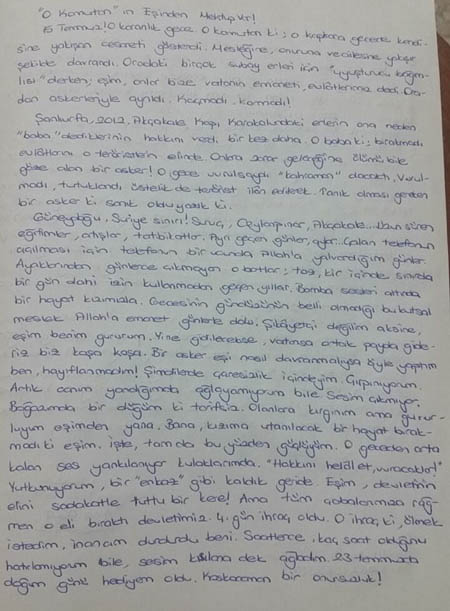 "O Komutan" ın Eşinden Mektup Var!
15 Temmuz! O karanlık gece. O komutan ki; o kapkara gecede kendi-
sine yakışan cesareti gösterdi. Mesleğine, onuruna ve ailesine yakışır
şekilde davrandı. Oradaki birçok subay erleri için "uyuşturucu bağım-
lısı" derken; eşim, onlar bize vatanın emaneti, evlâtlarımız dedi. Ora-
dan askerleriyle ayrıldı. Kaçmadı. Korkmadı!
Şanlıurfa, 2012, Akçakale Kapı Karakolundaki erlerin ona neden
"baba" dediklerinin hakkını verdi bir kez daha. O baba ki; bırakmadı
evlâtlarını o teröristlerin elinde. Onlara zarar geleceğine ölümü bile
göze alan bir asker! O gece vurulsaydı "kahraman" olacaktı, vurul-
madı, tutuklandı üstelik de terörist ilan edilerek. Tanık olması gereken
bir asker ki sanık oldu yazık ki.
Güneydoğu, Suriye sınırı! Suruç, Ceylanpınar, Akçakale... Uzun süren
eğitimler, atışlar, tatbikatlar. Ayrı geçen günler, aylar. Çalan telefonun
açılması için telefonun bir ucunda Allah'a yalvardığım günler.
Ayaklarından günlerce çıkmayan o botlar; toz, kir içinde sınırda
bir gün dahi izin kullanmadan geçen yıllar. Bomba sesleri altında
bir hayat kızımızla. Gecesinin gündüzünün belli olmadığı bu kutsal
meslek Allah'a emanet günlerle dolu. Şikâyetçi değilim aksine,
eşim benim gururum. Yine gidilecekse, vatansa ortak payda gide-
riz biz koşa koşa. Bir asker eşi nasıl davranmalıysa öyle yaptım
ben, hayıflanmadım! Şimdilerde çaresizlik içindeyim. Çırpınıyorum.
Artık canım yandığımda ağlayamıyorum bile. Sesim çıkmıyor.
Boğazımda bir düğüm ki tarifsiz. Olanlara kırgınım ama gurur-
luyum eşimden yana. Bana, kızıma utanılacak bir hayat bırak-
madı ki eşim. İşte, tam da bu yüzden güçlüyüm. O geceden arta
kalan ses yankılanıyor kulaklarımda. "Hakkını helâl et, vuracaklar!"
Yutkunuyorum, bir "enkaz" gibi kaldık geride. Eşim, devletinin
elini sadakatle tuttu bir kere! Ama tüm çabalarımıza rağ-
men o eli bıraktı devletimiz. 4. gün ihraç oldu. O ihraç ki, ölmek
istedim, inancım durdurdu beni. Saatlerce, kaç saat olduğunu
hatırlamıyorum bile, sesim kısılana dek ağladım. 23 temmuzda
doğum günü hediyem oldu. Koskocaman bir onursuzluk!